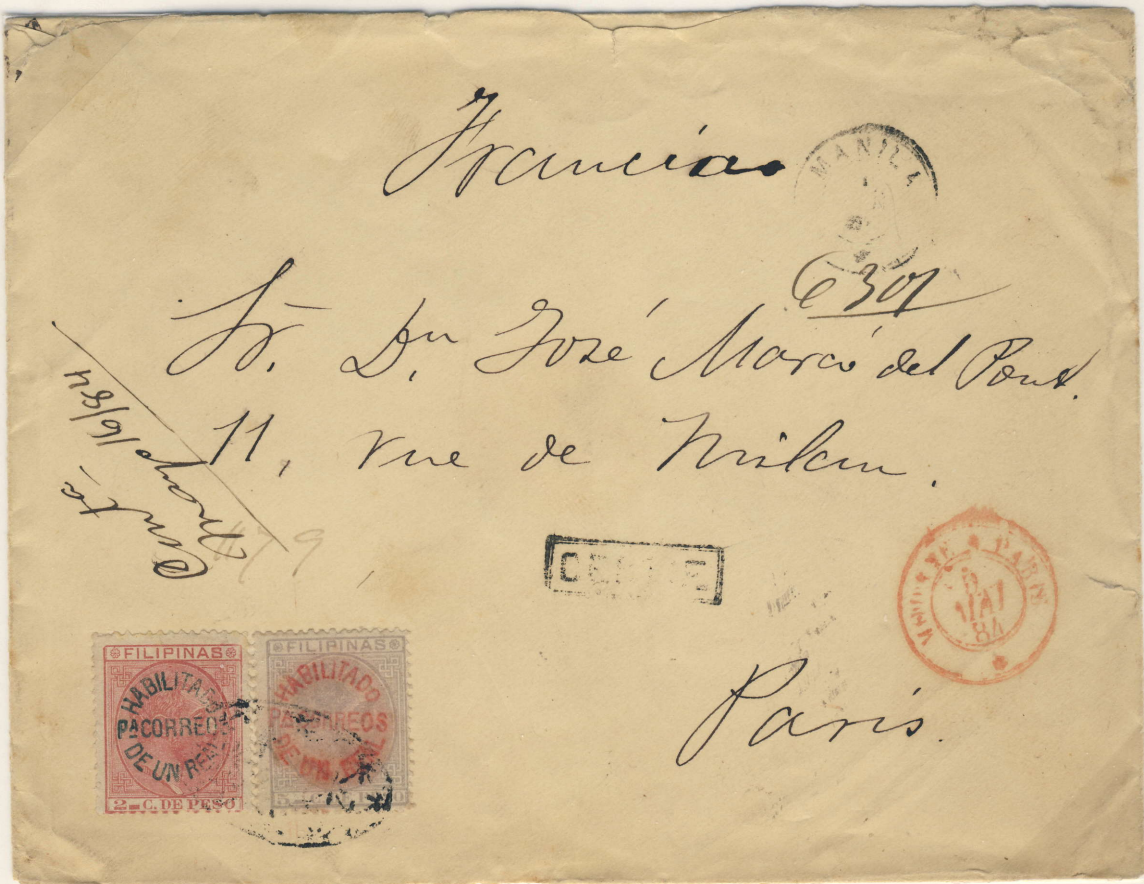 Francia
MANILA
6301
Sr. Dn. José Marcó del Pont.
11, rue de Milan.
Contª
Mayo 16/84
PARIS
5
MAI
84
Paris.
FILIPINAS
HABILITADO
PA CORREOS
DE UN REAL
2 C. DE PESO
FILIPINAS
HABILITADO
PA CORREOS
DE UN REAL